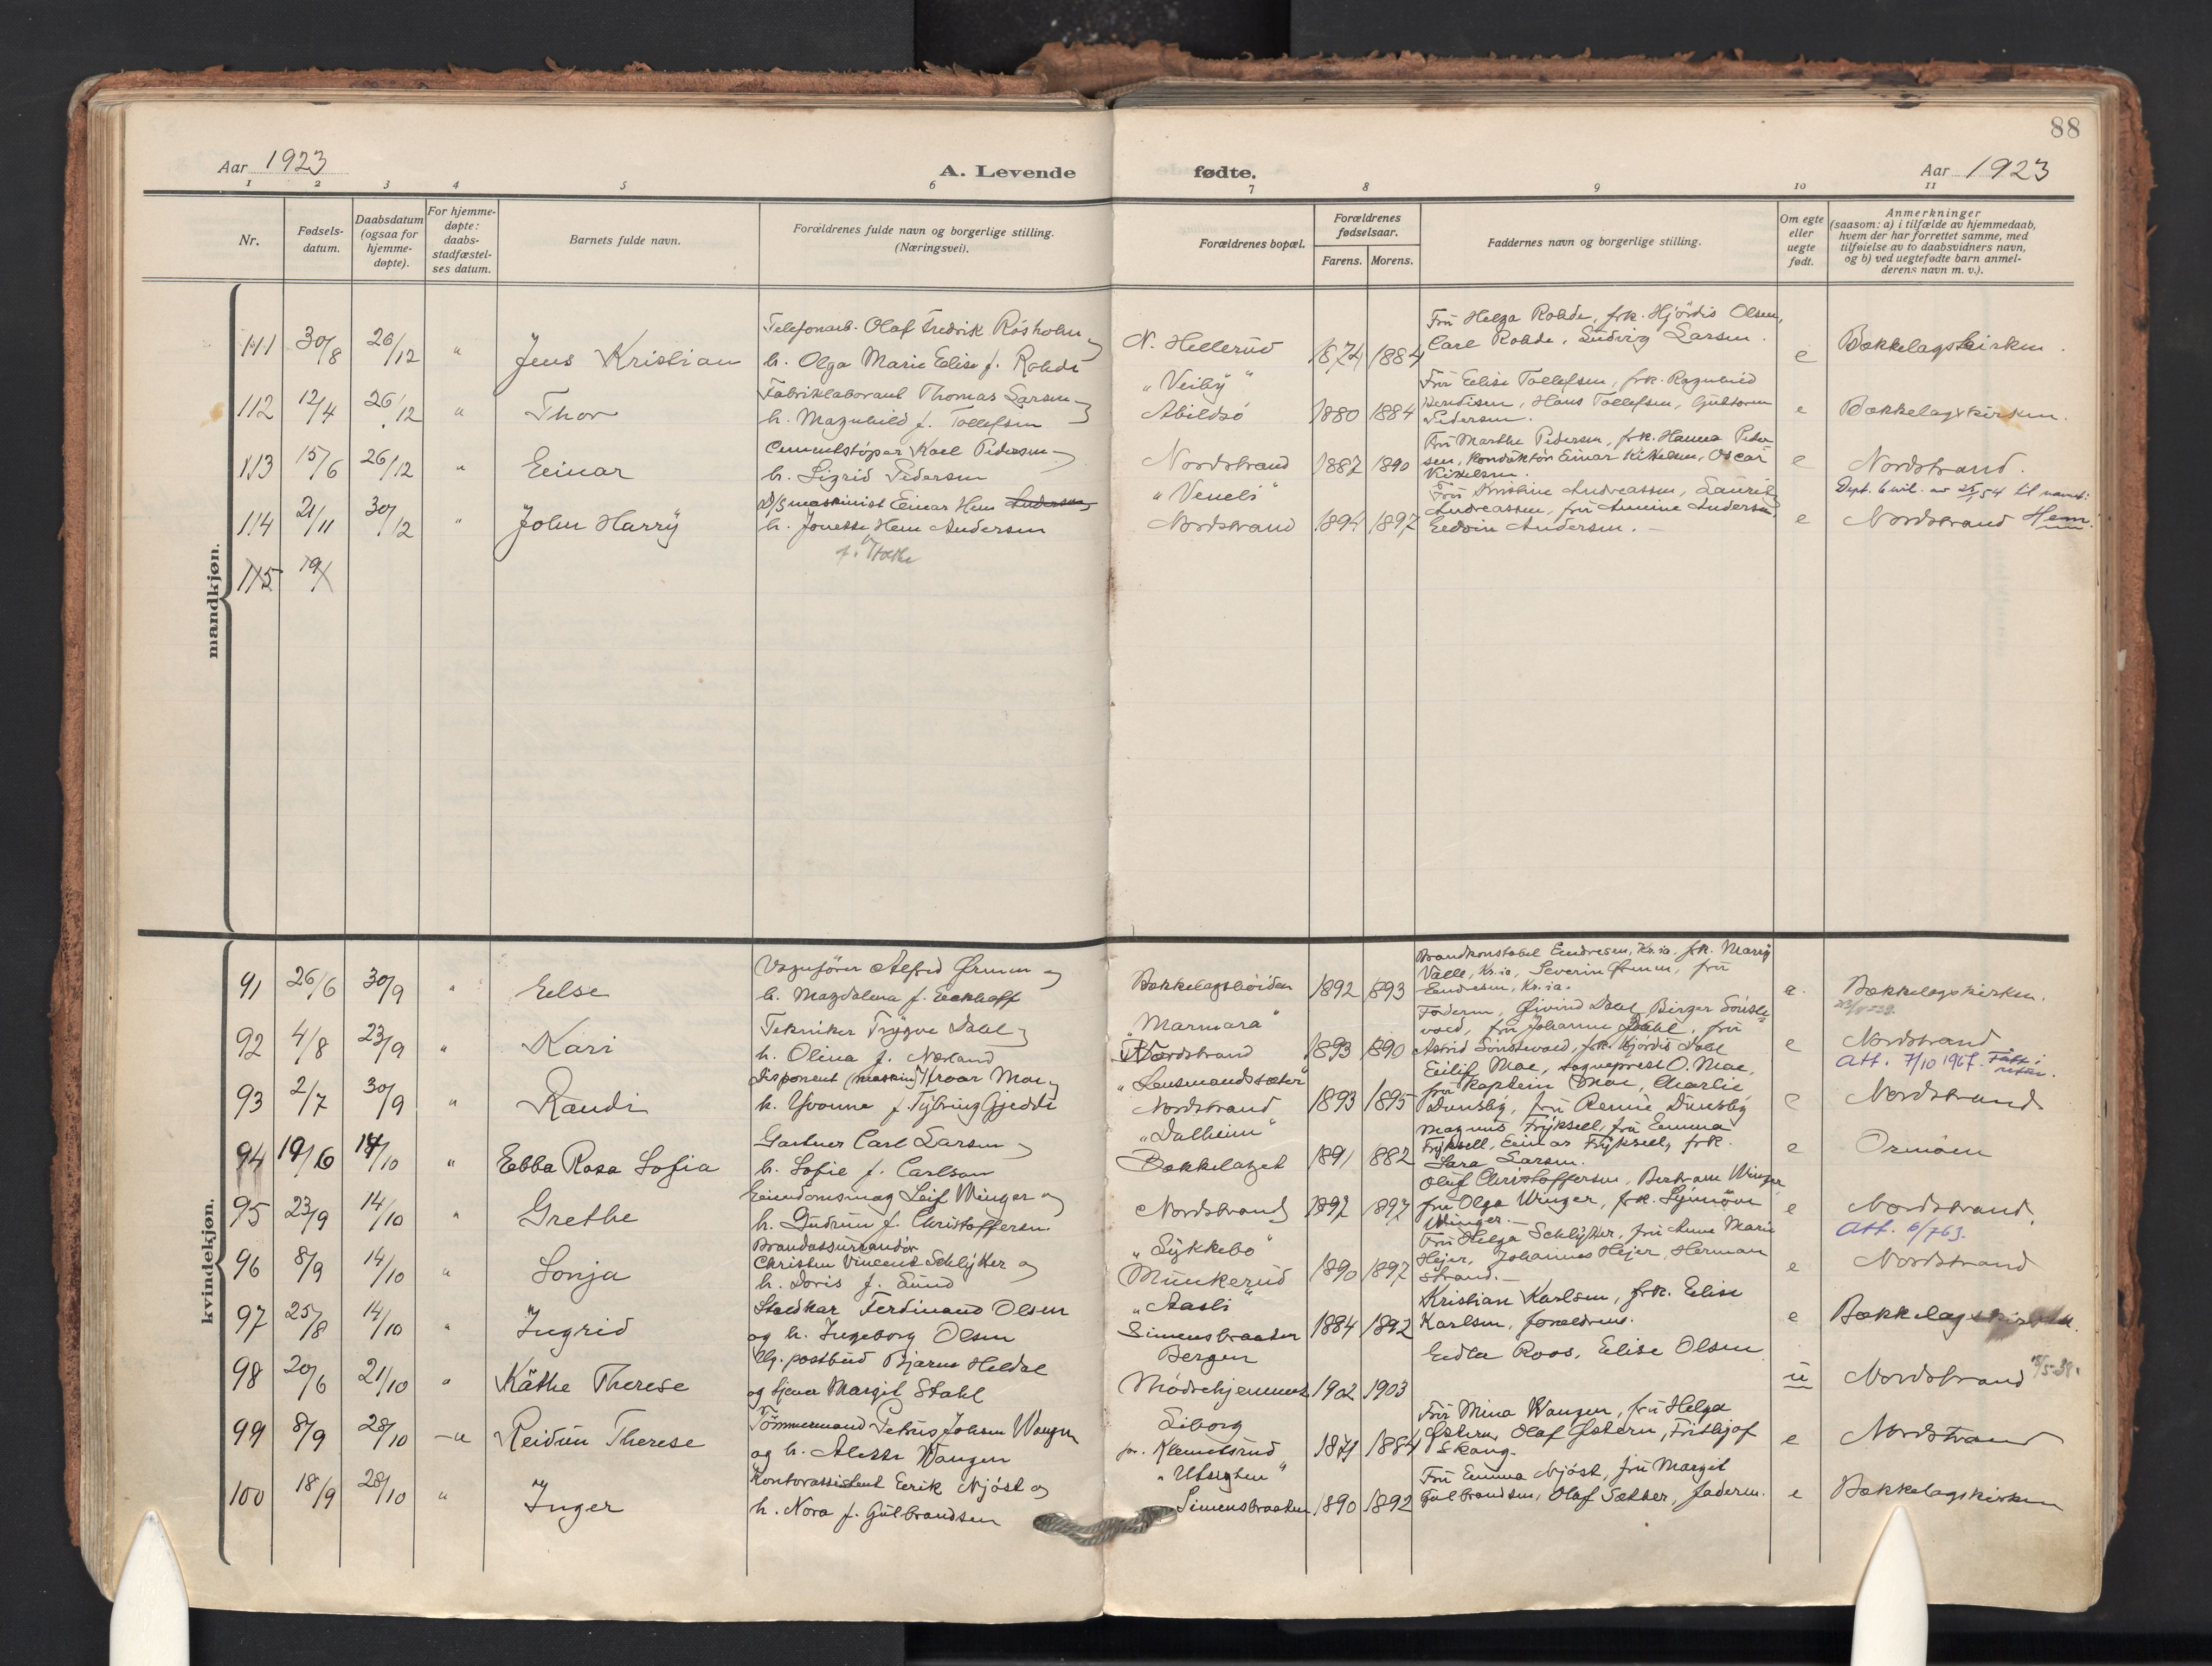 88
Aar 1923
A. Levende
fødte.
Aar 1923
1 2 3 4 5 6 7 8 9 10 11
Nr.
Fødsels-
datum.
Daabsdatum
(ogsaa for
hjemme-
døpte).
For hjemme-
døpte:
daabs-
stadfæstel-
ses datum.
Barnets fulde navn.
Forældrenes fulde navn og borgerlige stilling.
(Næringsvei).
Forældrenes bopæl.
Forældrenes
fødselsaar.
Farens. Morens.
Faddernes navn og borgerlige stilling.
Om egte
eller
uegte
født.
Anmerkninger
(saasom: a) i tilfælde av hjemmedaab,
hvem der har forrettet samme, med
tilføielse av to daabsvidners navn,
og b) ved uegtefødte barn anmel-
derens navn m. v.).
mandkjøn.
111 30/8 26/12 " Jens Kristian
Telefonarb. Olaf Fredrik Rösholm
h. Olga Marie Elise f. Rohde
N. Hellerud 1874 1884
Fru Helga Rohde, frk. Hjördis Olsen,
Carl Rohde, Ludvig Larsen.
e Bækkelagskirken.
112 12/4 26/12 " Thor
Fabriklaborant Thomas Larsen
h. Magnhild f. Tollefsen
"Veiby"
Abildsö 1880 1884
Fru Elise Tollefsen, frk. Ragnhild
Bendixen, Hans Tollefsen, Guttorm
Pedersen.
e Bækkelagskirken.
113 15/6 26/12 " Einar
Cementstöper Karl Pedersen
h. Sigrid Pedersen
Nordstrand 1887 1890
Fru Marthe Pedersen, frk. Hanna Peder
sen, Konduktör Einar Kixelsen, Oscar
Kixelsen.
e Nordstrand.
114 21/11 30/12 " John Harry
D/S maskinist Einar Hem Andersen
h. Jonette Hem Andersen
"Veneli"
Nordstrand 1894 1897
Fru Kristine Andreassen, Laurits
Andreassen, fru Annine Andersen,
Edvin Andersen.
e Nordstrand Hem.
115 19/
kvindekjøn.
91 26/6 30/9 " Else
Vognfører Alfred Ørmen og
h. Magdalena f. Eckhoff
Bækkelagshöiden 1892 1893
Brandkonstabel Endresen, Kr.ia. frk. Marry
Valle, Kr.ia, Severin Ørmen, fru
Endresen, Kr.ia.
e. Bækkelagskirken.
92 4/8 23/9 " Kari
Tekniker Trygve Dahl
h. Olina f. Nærland
"Marmara"
Nordstrand 1893 1890
Faderen, Øivind Dahl, Birger Sönste
vold, fru Johanne Dahl, fru
Astrid Sönstevold, frk. Hjördis Dahl
e Nordstrand
Att. 7/10 1967.
93 2/7 30/9 " Randi
Disponent (maskin) Hroar Moe
h. Yvonne f. Tybring Gjedde
"Lensmandssæter"
Nordstrand 1893 1895
Eilif Moe, sogneprest O. Moe,
fru Kaptein Moe, Charlie
Dunsby, fru Rennie Dunsby
e Nordstrand
94 19/6 14/10 " Ebba Rosa Sofia
Gartner Carl Larsen
h. Sofie f. Carlson
"Dalheim"
Bækkelaget 1891 1882
Magnus Fryksell, fru Emma
Fryksell, Einar Fryksell, frk.
Sara Larsen.
e Ormöen
95 23/9 14/10 " Grethe
Eiendomsmæg Leif Winger og
h. Gudrun f. Christoffersen
Nordstrand 1892 1897
Oluf Christoffersen, Bertram Winger
fru Olga Winger, frk. Synnöve
Winger.
e Nordstrand.
Att. 6/7 63.
96 8/9 14/10 " Sonja
Brandassurandör
Christen Vincent Schlytter og
h. Doris f. Lund
"Lykkebo"
Munkerud 1890 1897
Fru Helga Schlytter, fru Anne Marie
Hejer, Johannes Hejer, Herman
Strand.
e Nordstrand
97 25/8 14/10 " Ingrid
Staldkar Ferdinand Olsen
og h. Ingeborg Olsen
"Aasli"
Simensbraaten 1884 1892
Kristian Karlsen, frk. Elise
Karlsen, forældrene.
e Bækkelagskirken.
98 20/6 21/10 " Käthe Therese
Ug. postbud Bjarne Heldal
og tjener Margit Stahl
Bergen
Mödrehjemmet 1902 1903
Endla Roos, Elise Olsen
u Nordstrand
99 8/9 28/10 " Reidun Therese
Tömmermand Petrus Johsen Wangen
og h. Alette Wangen
Liborg
pr. Klemetsrud 1879 1884
Fru Mina Wangen, fru Helga
Østern, Olaf Østern, Frithjof
Skaug.
e Nordstrand
100 18/9 28/10 " Inger
Kontorassistent Eerik Mjöst og
h. Nora f. Gulbrandsen
"Utsigten"
Simensbraaten 1890 1892
Fru Emma Mjöst, fru Margit
Gulbrandsen, Olaf Sæther, faderen.
e Bækkelagskirken